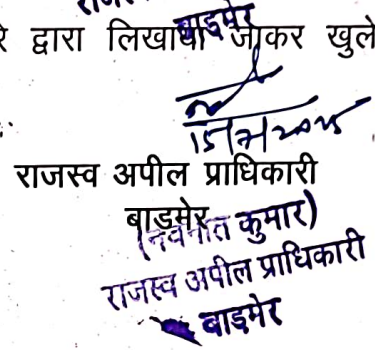 बाड़मेर
रे द्वारा लिखाया जाकर खुले
राजस्व अपील प्राधिकारी
बाड़मेर
(नवनीत कुमार)
राजस्व अपील प्राधिकारी
बाड़मेर